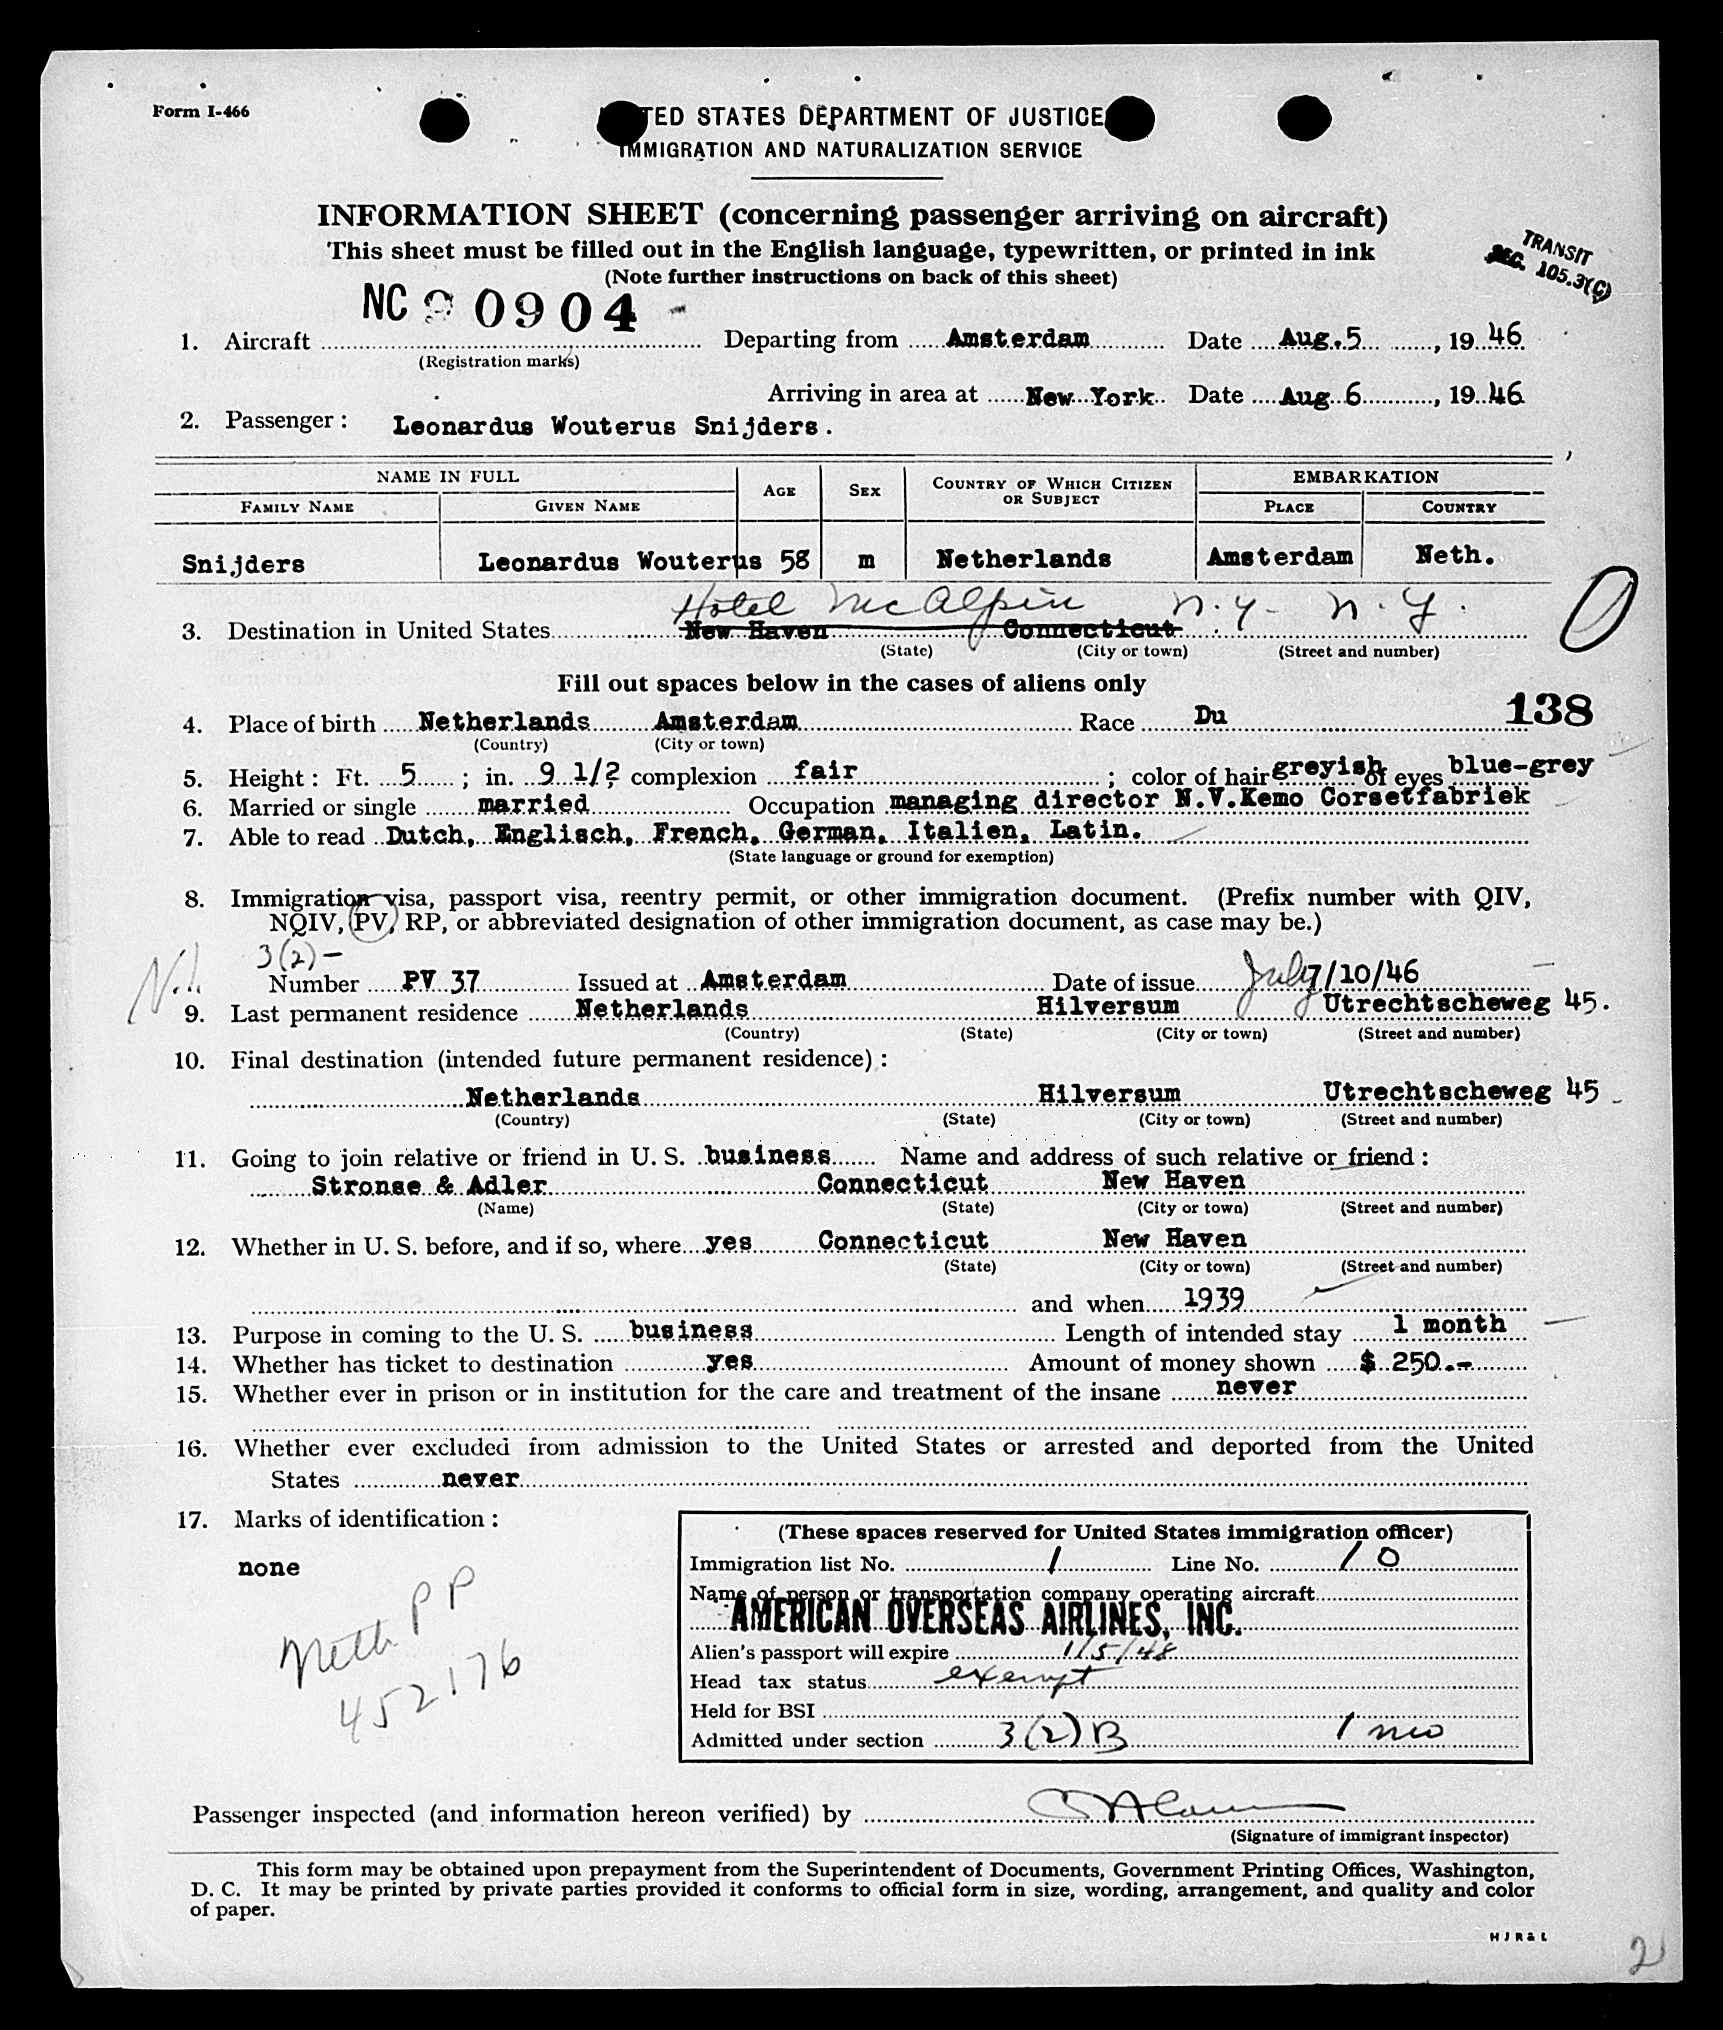 Form I-466
TED STATES DEPARTMENT OF JUSTICE
IMMIGRATION AND NATURALIZATION SERVICE
INFORMATION SHEET (concerning passenger arriving on aircraft)
This sheet must be filled out in the English language, typewritten, or printed in ink
(Note further instructions on back of this sheet)
TRANSIT
SEC. 105.3(C)
NC 90904
1. Aircraft Departing from Amsterdam Date Aug.5 , 1946
(Registration marks)
Arriving in area at New York Date Aug 6 , 1946
2. Passenger : Leonardus Wouterus Snijders.
NAME IN FULL AGE SEX COUNTRY OF WHICH CITIZEN OR SUBJECT EMBARKATION
FAMILY NAME GIVEN NAME PLACE COUNTRY
Snijders Leonardus Wouterus 58 m Netherlands Amsterdam Neth.
Hotel McAlpin N.Y. N.Y.
3. Destination in United States New Haven Connecticut
(State) (City or town) (Street and number)
0
Fill out spaces below in the cases of aliens only
138
4. Place of birth Netherlands Amsterdam Race Du
(Country) (City or town)
5. Height : Ft. 5 ; in. 9 1/2 complexion fair ; color of hair greyish of eyes blue-grey
6. Married or single married Occupation managing director N.V.Kemo Corsetfabriek
7. Able to read Dutch, Englisch, French, German, Italien, Latin.
(State language or ground for exemption)
8. Immigration visa, passport visa, reentry permit, or other immigration document. (Prefix number with QIV,
NQIV, PV, RP, or abbreviated designation of other immigration document, as case may be.)
3(2)-
Number PV 37 Issued at Amsterdam Date of issue July 7/10/46
9. Last permanent residence Netherlands Hilversum Utrechtscheweg 45.
(Country) (State) (City or town) (Street and number)
10. Final destination (intended future permanent residence) :
Netherlands Hilversum Utrechtscheweg 45
(Country) (State) (City or town) (Street and number)
11. Going to join relative or friend in U. S. business Name and address of such relative or friend :
Stronse & Adler Connecticut New Haven
(Name) (State) (City or town) (Street and number)
12. Whether in U. S. before, and if so, where yes Connecticut New Haven
(State) (City or town) (Street and number)
and when 1939
13. Purpose in coming to the U. S. business Length of intended stay 1 month
14. Whether has ticket to destination yes Amount of money shown $ 250.-
15. Whether ever in prison or in institution for the care and treatment of the insane never
16. Whether ever excluded from admission to the United States or arrested and deported from the United
States never
17. Marks of identification :
none
Neth PP
452176
(These spaces reserved for United States immigration officer)
Immigration list No. 1 Line No. 10
Name of person or transportation company operating aircraft
AMERICAN OVERSEAS AIRLINES, INC.
Alien's passport will expire 1/5/48
Head tax status exempt
Held for BSI
Admitted under section 3(2)B 1 mo
Passenger inspected (and information hereon verified) by
(Signature of immigrant inspector)
This form may be obtained upon prepayment from the Superintendent of Documents, Government Printing Offices, Washington,
D. C. It may be printed by private parties provided it conforms to official form in size, wording, arrangement, and quality and color
of paper.
H J R & L
2